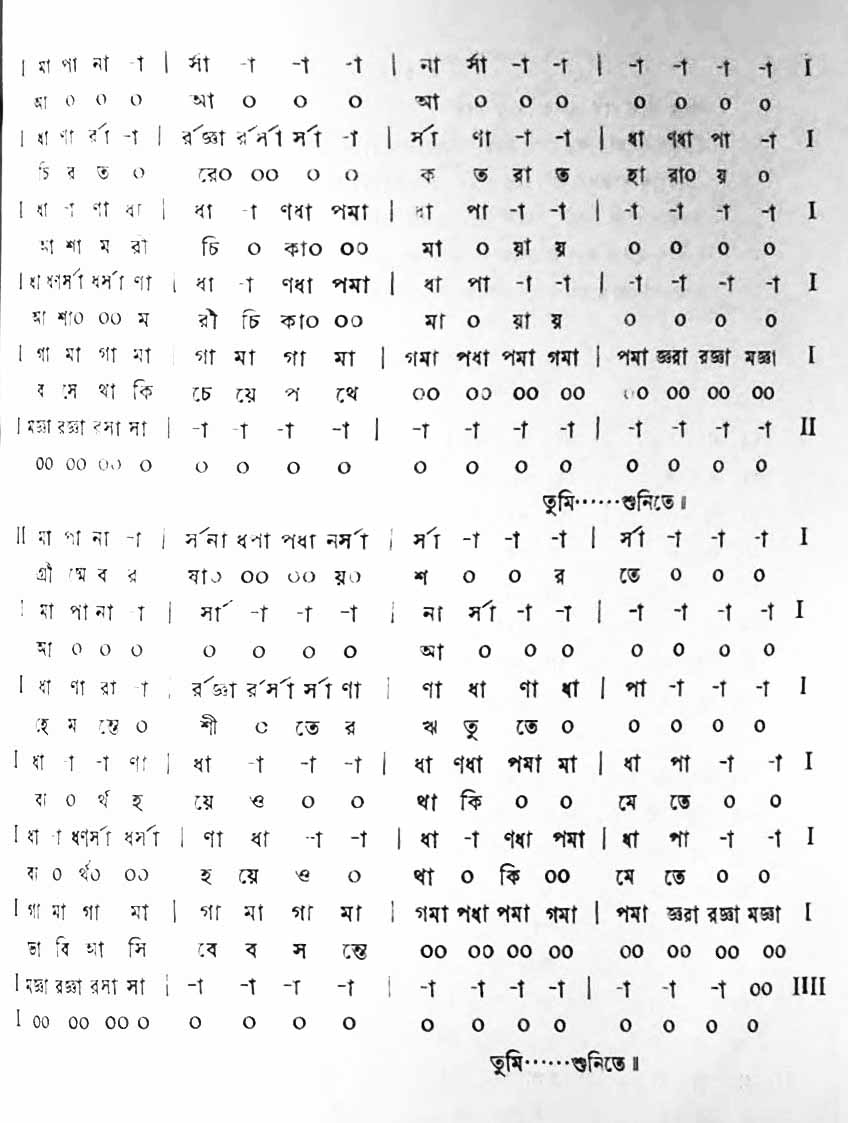 | মা পা না -া | র্সা -া -া -া | না র্সা -া -া | -া -া -া -া I
আ ০ ০ ০ আ ০ ০ ০ আ ০ ০ ০ ০ ০ ০ ০
| ধা ণা র্রা -া | র্রজ্ঞা র্রর্সা র্সা -া | র্সা ণা -া -া | ধা ণধা পা -া I
চি র ত ০ রে০ ০০ ০ ০ ক ত রা ত হা রা০ য় ০
| ধা -া ণা ধা | ধা -া ণধা পমা | ধা পা -া -া | -া -া -া -া I
আ শা ম রী চি ০ কা০ ০০ মা ০ য়া য় ০ ০ ০ ০
| ধা ধণর্সা ধর্সা ণা | ধা -া ণধা পমা | ধা পা -া -া | -া -া -া -া I
আ শা০ ০০ ম রী চি কা০ ০০ মা ০ য়া য় ০ ০ ০ ০
| গা মা গা মা | গা মা গা মা | গমা পধা পমা গমা | পমা জ্ঞরা রজ্ঞা মজ্ঞা I
ব সে থা কি চে য়ে প থে ০০ ০০ ০০ ০০ ০০ ০০ ০০ ০০
| মজ্ঞা রজ্ঞা রসা সা | -া -া -া -া | -া -া -া -া | -া -া -া -া II
০০ ০০ ০০ ০ ০ ০ ০ ০ ০ ০ ০ ০ ০ ০ ০ ০
তুমি······শুনিতে॥
II মা পা না -া | র্সনা ধপা পধা নর্সা | র্সা -া -া -া | র্সা -া -া -া I
গ্রী ষ্মে ব র ষা০ ০০ ০০ য়০ শ ০ ০ র তে ০ ০ ০
| মা পা না -া | র্সা -া -া -া | না র্সা -া -া | -া -া -া -া I
আ ০ ০ ০ ০ ০ ০ ০ আ ০ ০ ০ ০ ০ ০ ০
| ধা ণা রা -া | র্রজ্ঞা র্রর্সা র্সা ণা | ণা ধা ণা ধা | পা -া -া -া I
হে ম ন্তে ০ শী ০ তে র ঋ তু তে ০ ০ ০ ০ ০
I ধা -া -া ণা | ধা -া -া -া | ধা ণধা পমা মা | ধা পা -া -া I
ব্য ০ র্থ হ য়ে ও ০ ০ থা কি ০ ০ মে তে ০ ০
I ধা -া ধণর্সা ধর্সা | ণা ধা -া -া | ধা -া ণধা পমা | ধা পা -া -া I
ব্য ০ র্থ০ ০০ হ য়ে ও ০ থা ০ কি ০০ মে তে ০ ০
I গা মা গা মা | গা মা গা মা | গমা পধা পমা গমা | পমা জ্ঞরা রজ্ঞা মজ্ঞা I
ভা বি আ সি বে ব স ন্তে ০০ ০০ ০০ ০০ ০০ ০০ ০০ ০০
I মজ্ঞা রজ্ঞা রসা সা | -া -া -া -া | -া -া -া -া | -া -া -া ০০ IIII
I ০০ ০০ ০০ ০ ০ ০ ০ ০ ০ ০ ০ ০ ০ ০ ০ ০
তুমি······শুনিতে॥